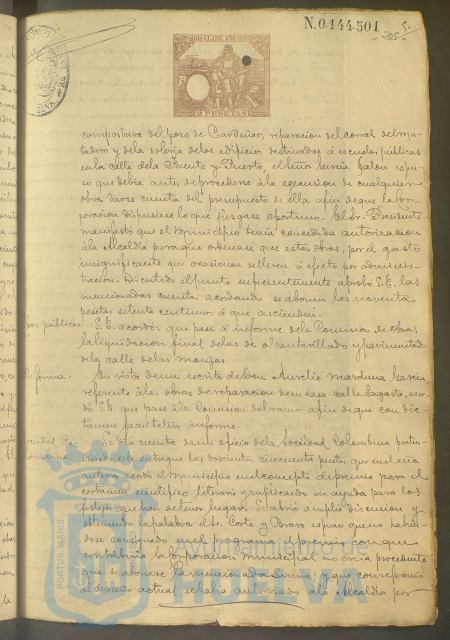 N.0.144.501
205
2 PESETAS
compostura del pozo de Cardeñas, reparacion del corral del ma-
tadero y de la solería de los edificios destinados á escuelas públicas
en la calle de la Fuente y Puerto, el Señor García espu-
so que debia antes de procederse á la egecucion de cualquiera
obra darse cuenta del presupuesto de ella afin de que la Cor-
poracion dispusiese lo que juzgase oportuno. El Sr. Presidente
manifestó que el Municipio tenia concedida autorizacion
á la Alcaldía para que ordenase que estas obras, por el gasto
insignificante que ocasionan se lleven á efecto por adminis-
tracion. Discutido el punto suficientemente aprobó S.E. las
mencionadas cuentas acordando se abonen las noventa
pesetas setenta centimos á que ascienden.
públicas S.E. acordó: que pase á informe de la Comision de Obras
la liquidacion final de las de alcantarillado y pavimentado
de la calle de las Monjas.
En vista de un escrito de Don Aurelio
referente á las obras de reparacion de su casa calle Sagasta, acor-
dó S.E. que pase á la Comision del ramo afin de que con dic-
tamen facultativo informe.
Se dió cuenta de un oficio de la Sociedad Colombina preten-
diendo se le entregue las doscientas cincuenta pesetas que en el año
anterior acordó el Municipio en el concepto de premio para el
certamen científico literario y suplicando su ayuda para los
festejos que han de tener lugar. Se abrió amplia discusion y
obteniendo la palabra el Sr. Corte y espuso que no habien-
dose consignado en el programa el premio con que
contribuia la Corporacion municipal no creia procedente
que se abonase la mencionada suma y que con referencia
al del año actual se habia autorizado á la Alcaldía por
Ayuntamiento de
HUELVA
PORTUS MARIS